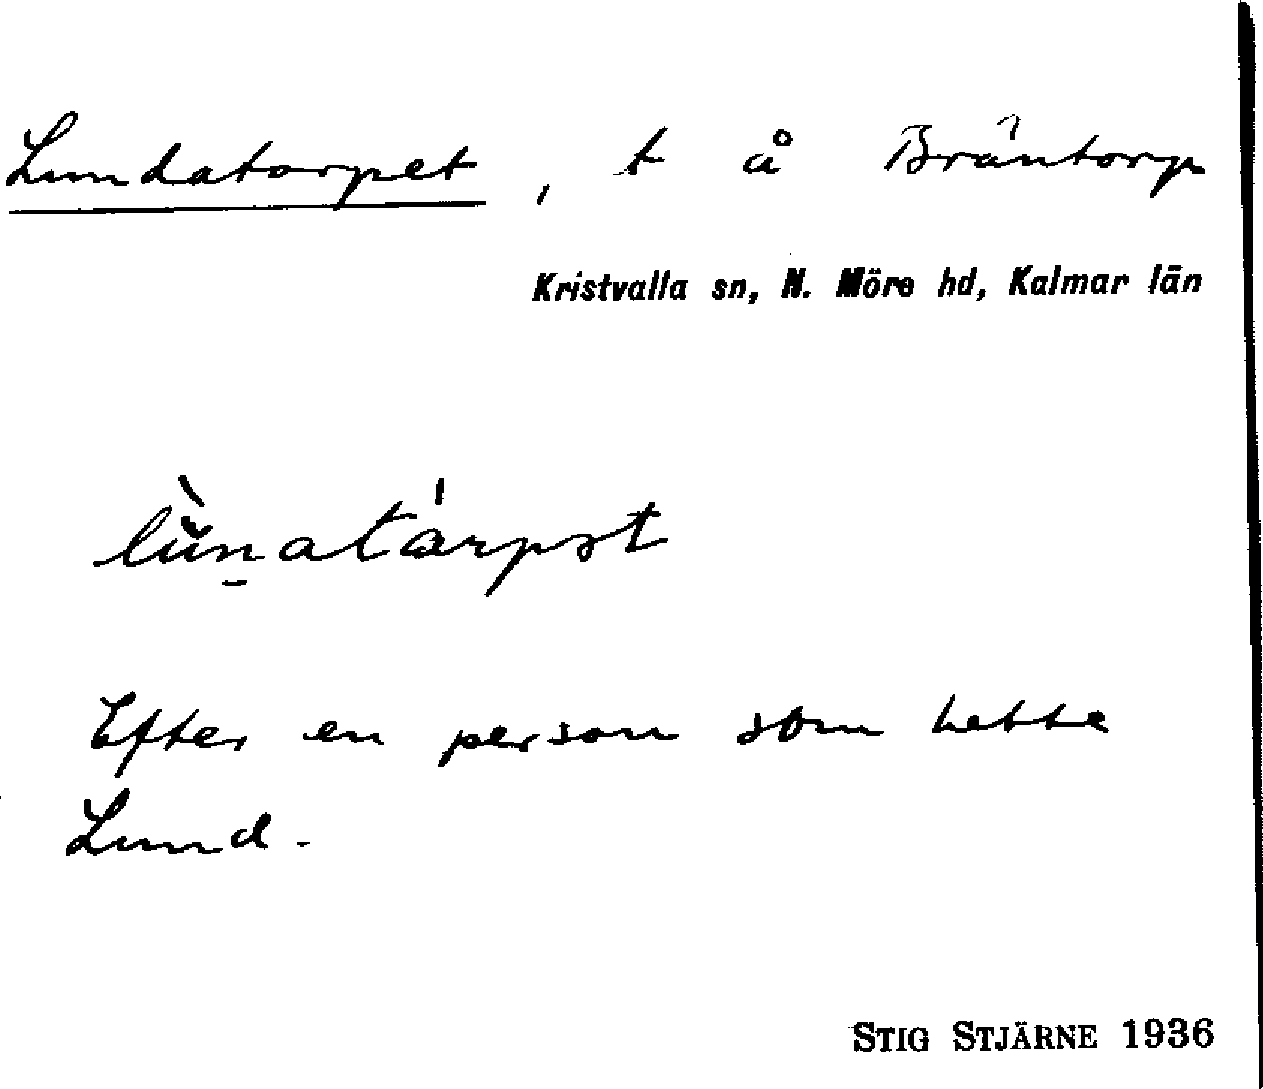 Lundatorpet, t å Bräntorp
Kristvalla sn, N. Möre hd, Kalmar län
Efter en person som hette
Lund.
STIG STJÄRNE 1936